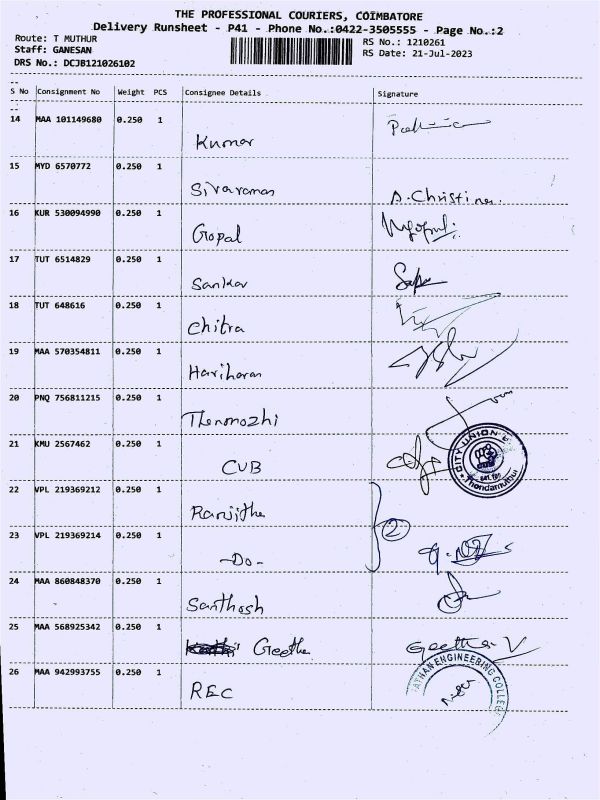 THE PROFESSIONAL COURIERS, COIMBATORE
Delivery Runsheet - P41 - Phone No.:0422-3505555 - Page No.:2
Route: T MUTHUR
RS No.: 1210261
Staff: GANESAN
RS Date: 21-Jul-2023
DRS No.: DCJB121026102
S No Consignment No Weight PCS Consignee Details Signature
14 MAA 101149680 0.250 1
Kumar
15 MYD 6570772 0.250 1
Sivaraman A.Christina
16 KUR 530094990 0.250 1
Gopal
17 TUT 6514829 0.250 1
Sankar
18 TUT 648616 0.250 1
Chitra
19 MAA 570354811 0.250 1
Hariharan
20 PNQ 756811215 0.250 1
Thenmozhi
21 KMU 2567462 0.250 1
CUB
CITY UNION
Thondamuthur
22 VPL 219369212 0.250 1
Ranjitha
2
23 VPL 219369214 0.250 1
-Do-
24 MAA 860848370 0.250 1
Santhosh
25 MAA 568925342 0.250 1
Geetha Geetha V
26 MAA 942993755 0.250 1
REC
ENGINEERING COLLEGE